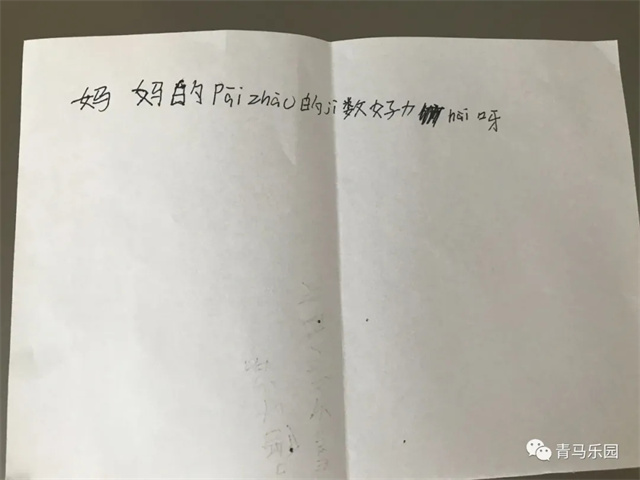 妈妈的pāizhào的jì数好力hai呀
青马乐园